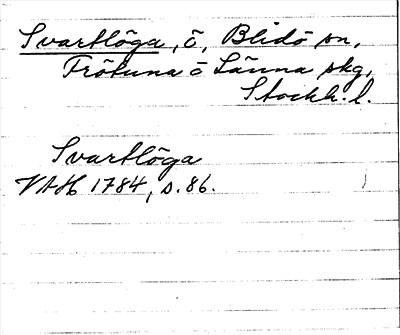 Svartlöga, ö, Blidö sn,
Frötuna o Länna skg,
Stockh. l.
Svartlöga
VAH 1784, s. 86.